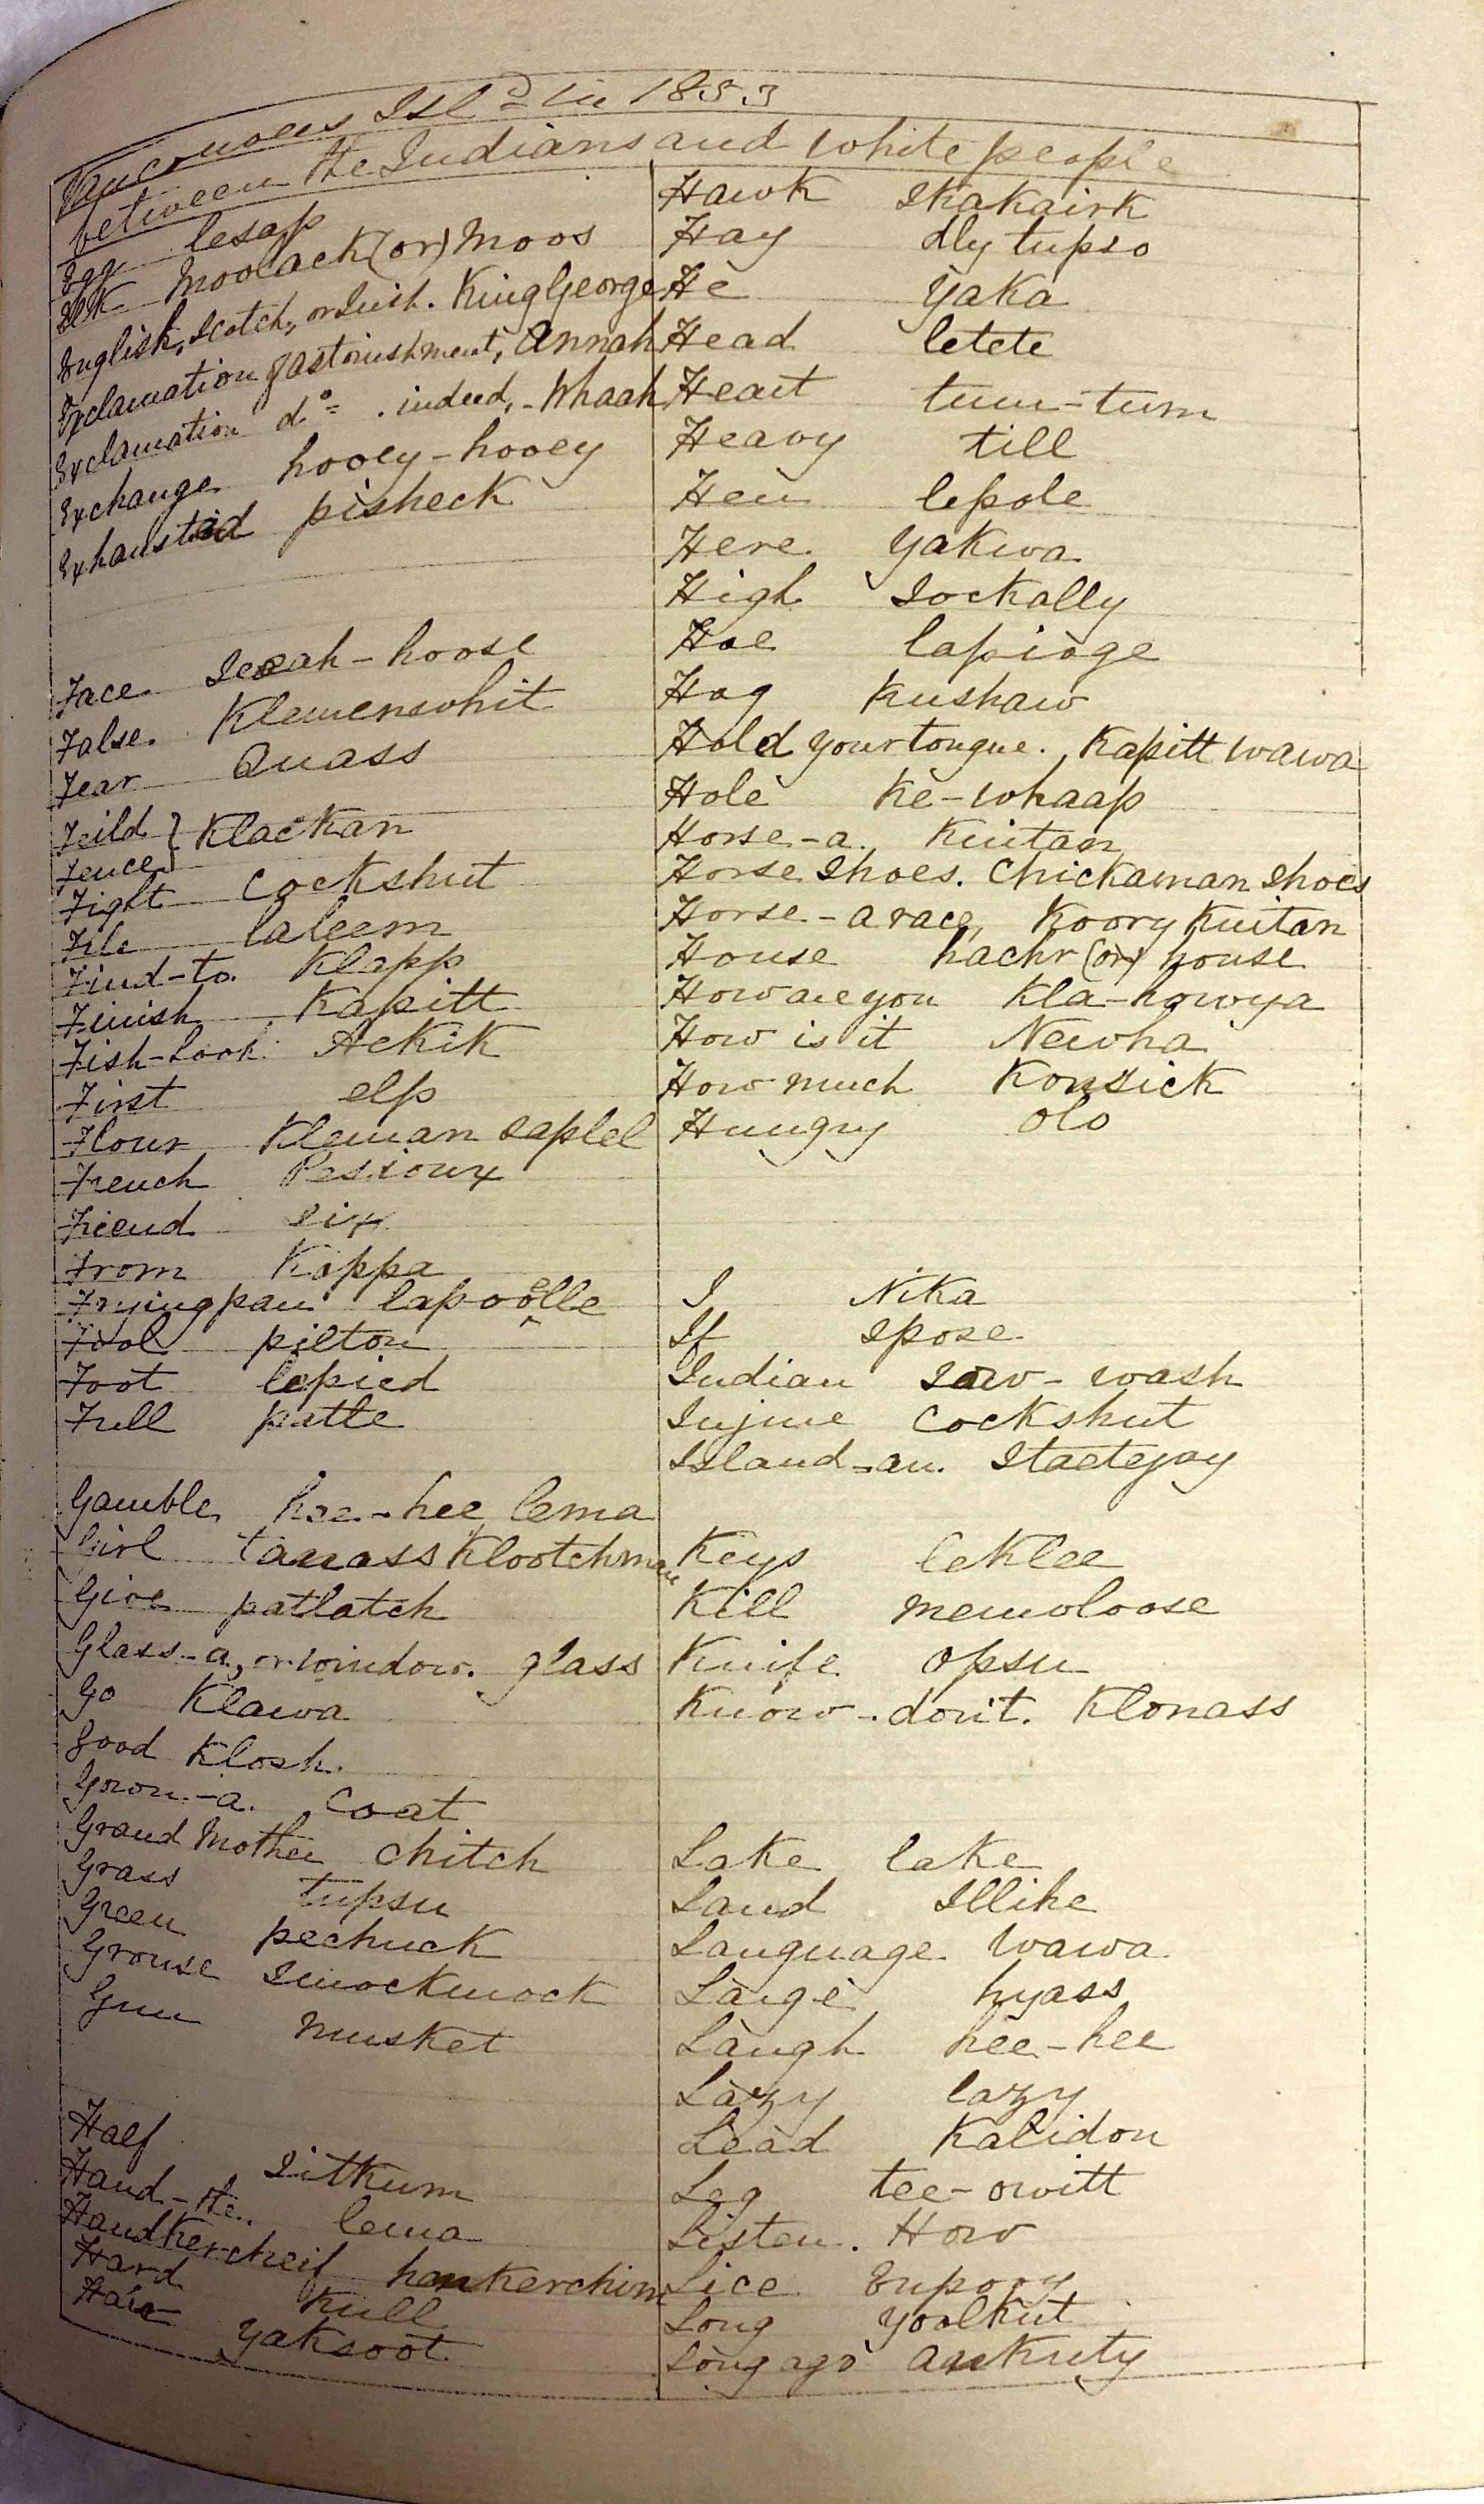 Vancouvers Isld in 1853
between the Indians and white people
Egg lesap
Elk Moolack (or) Moos
English, Scotch, or Irish. King George
Exclamation of astonishment, Annah
Exclamation do. indeed, - Whaah
Exchange hooey-hooey
Exhausted pisheck
Face Seeah-hoose
False Klemenswhit
Fear Quass
Feild } Klackan
Fence }
Fight Cockshut
File laleem
Find-to. Klapp
Finish Kapitt
Fish-hook Ackik
First elp
Flour Kleman saplel
French Pesioux
Friend six
From Koppa
Frying pan lapoëlle
Fool pilton
Foot lepied
Full patle
Gamble hee-hee lema
Girl tanass Klootchman
Give patlatch
Glass-a, or window. glass
Go Klawa
Good Klosh
Gown-a. Coat
Grand Mother Chitch
Grass tupsu
Green pechuck
Grouse Smockmock
Gun Musket
Half Sitkum
Hand-the. lema
Handkercheif hankerchim
Hard Kull
Hair Yaksoot
Hawk Skakairk
Hay dly tupso
He Yaka
Head letete
Heart tum-tum
Heavy till
Hen lepole
Here Yakwa
High Sockally
Hoe lapioge
Hog Kushaw
Hold your tongue. Kapitt wawa
Hole Ke-whaap
Horse-a. Kuitan
Horse Shoes. Chickaman Shoes
Horse-a race, Koory Kuitan
House hachr (or) house
How are you Kla-howya
How is it Newha
How much Konsick
Hungry Olo
I Nika
If Spose
Indian Saw-wash
Injure Cockshut
Island-an. Stactejay
Keys leklee
Kill Memoloose
Knife Opsu
Know-don't. Klonass
Lake lake
Land Illihe
Language Wawa
Large hyass
Laugh hee-hee
Lazy lazy
Lead Kalidon
Leg tee-owitt
Listen. How
Lice
Long Yoolkut
Long ago Ankuty